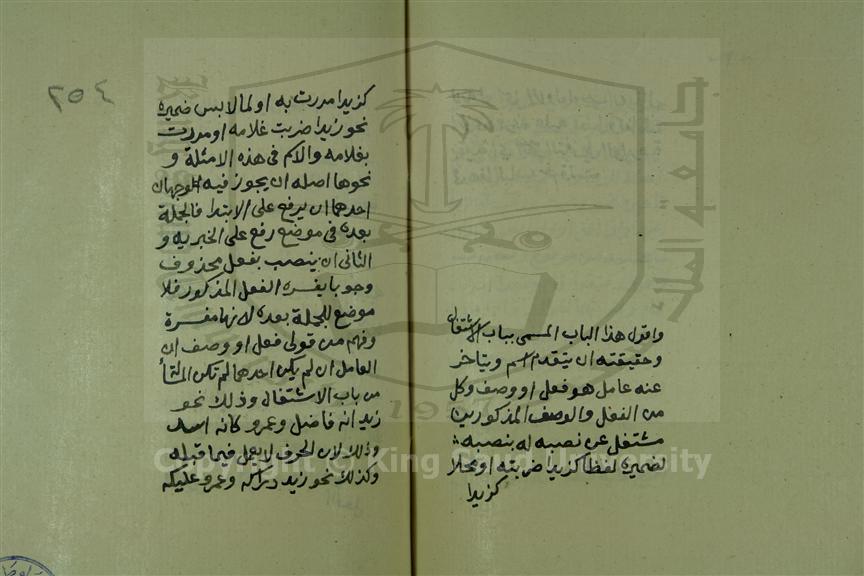 واقول هذا الباب المسمى بباب الاشتغال
وحقيقته ان يتقدم اسم ويتاخر
عنه عامل هو فعل او وصف وكل
من الفعل والوصف المذكورين
مشتغل عن نصبه له بنصبه
لضميره لفظا كزيدا ضربته او محلا
كزيدا
٢٥٤
كزيدا مررت به او لما لابس ضميره
نحو زيدا ضربت غلامه او مررت
بغلامه والاسم فى هذه الامثلة و
نحوها اصله ان يجوز فيه الوجهان
احدهما ان يرفع على الابتدا فالجملة
بعده فى موضع رفع على الخبرية و
الثانى ان ينصب بفعل محذوف
وجوبا يفسره الفعل المذكور فلا
موضع للجملة بعده لانها مفسرة
وفهم من قولى فعل او وصف ان
العامل ان لم يكن احدهما لم تكن المسألة
من باب الاشتغال وذلك نحو
زيد انه فاضل وعمرو كانه اسد
وذلك لان الحرف لا يعمل فيما قبله
وكذلك نحو زيد دراكه وعمرو عليكه
Copyright © King Saud University
1957